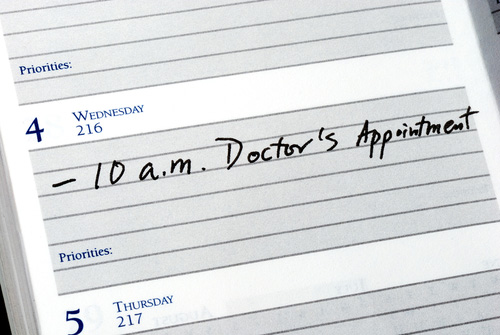 Priorities:
4 WEDNESDAY
216
- 10 a.m. Doctor's Appointment
Priorities:
5 THURSDAY
217